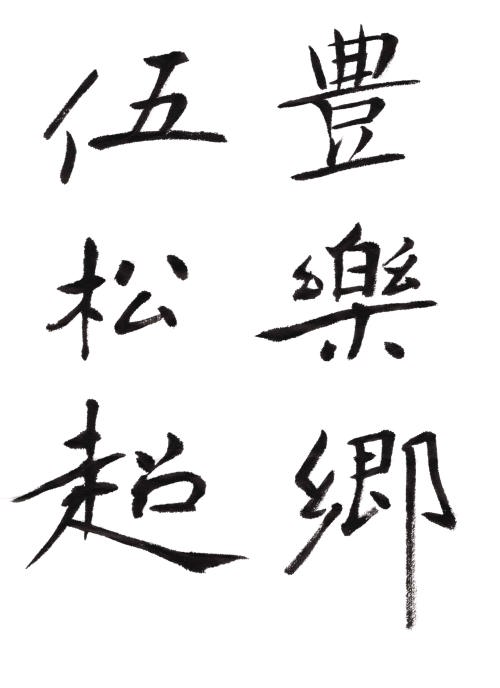 豊樂鄉
伍松超